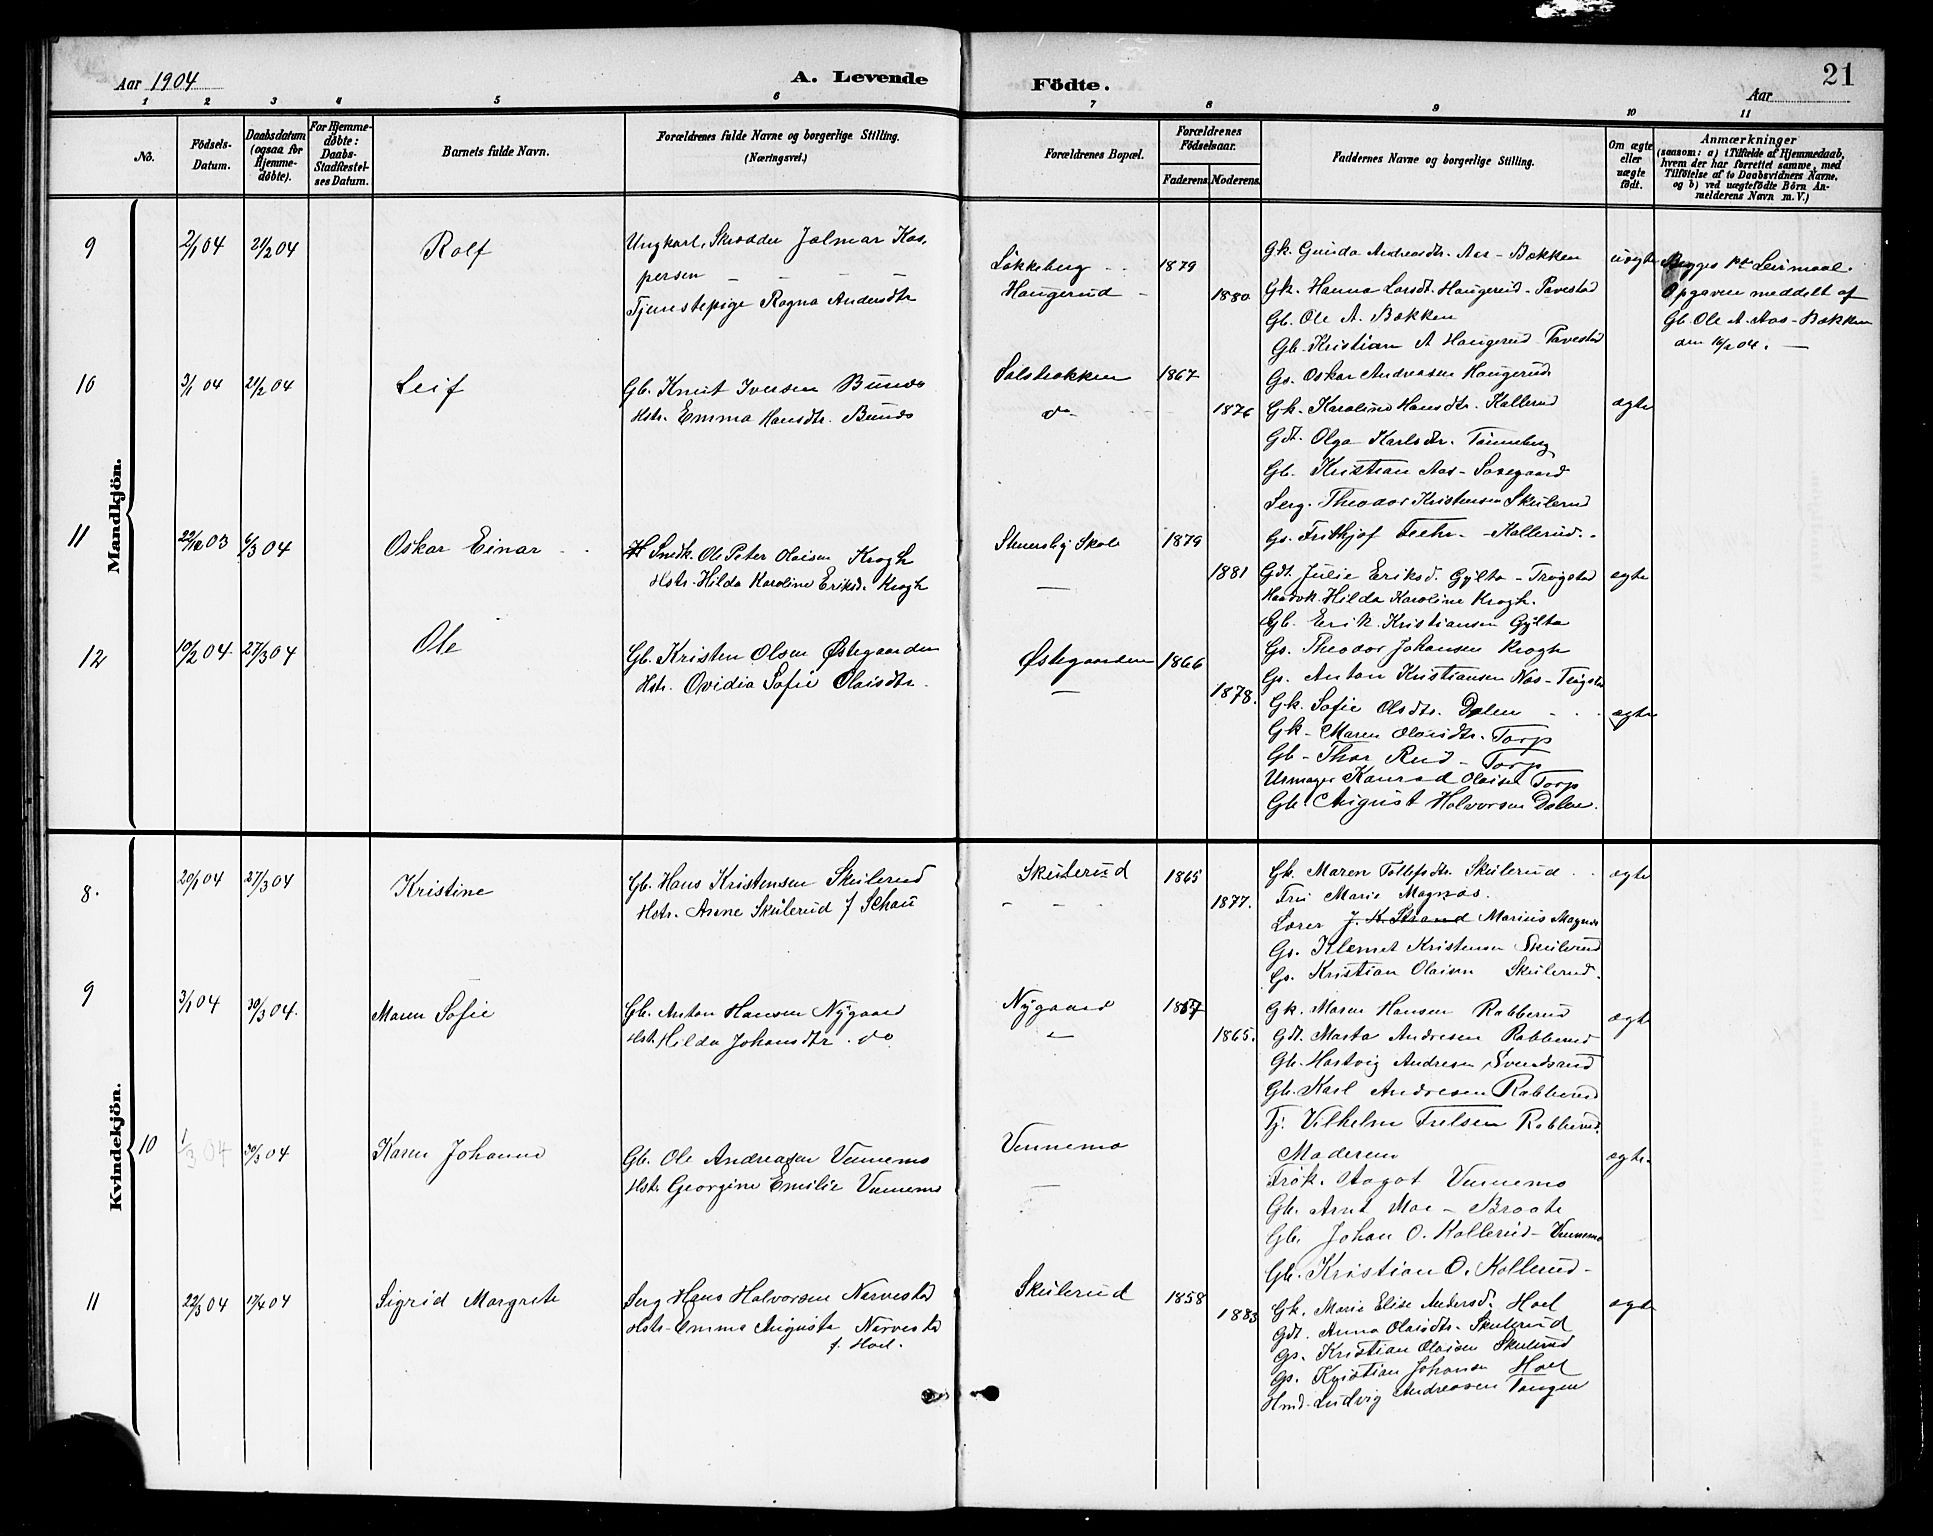 Aar 1904
A. Levende
Födte.
21
Aar
1 2 3 4 5 6 7 8 9 10 11
No.
Födsels-
Datum.
Daabsdatum
(ogsaa for
Hjemme-
döbte).
For Hjemme-
döbte:
Daabs-
Stadfæstel-
ses Datum.
Barnets fulde Navn.
Forældrenes fulde Navne og borgerlige Stilling.
(Næringsvei.)
Forældrenes Bopæl.
Forældrenes
Födselsaar.
Faderens. Moderens.
Faddernes Navne og borgerlige Stilling.
Om ægte
eller
uægte
født.
Anmærkninger
(saasom: a) i Tilfælde af Hjemmedaab,
hvem der har forrettet samme, med
Tilföielse af to Daabsvidners Navne,
og b) ved uægtefödte Börn An-
melderens Navn m. V.)
Mandkjön.
9
2/1 04
21/2 04
Rolf
Ungkarl, Skrædder Jalmar Kas-
persen
Tjenstepige Ragna Andersdtr
Løkkeberg
Haugerud
1879
1880
Gk. Guida Andreasdtr. Aas - Bækken
Gk. Hanna Larsdt. Haugerud - Tavestad
Gb. Ole A. Bækken
Gb. Kristian A Haugerud Tavestad
uægte
Begges 1ste Leirmaal.
Opgaven meddelt af
Gb. Ole A. Aas - Bækken
10
3/1 04
21/2 04
Leif
Gb. Knut Iversen Bunes
Hstr. Emma Hansdtr. Bunes
Solbakken
do
1867
1876
Gs. Oskar Andreasen Haugerud
Gk. Karoline Hansdtr. Kallerud
Gdt. Olga Karlsdtr. Tønneberg
Gb. Kristian Aas - Sosegaard
Serg. Theodor Kristensen Skulerud
ægte
11
22/12 03
6/3 04
Oskar Einar
Smdk. Ole Peter Olaisen Krogh
Hstr. Hilda Karoline Eriksd. Krogh
Stuersby Skole
1879
1881
Gs. Frithjof Feehr. - Kallerud.
Gdt. Julie Eriksd. Gylta - Trøgstad
Haadvk. Hilda Karoline Krogh.
Gb. Erik Kristiansen Gylta
Gs. Theodor Johansen Krogh
ægte
12
10/2 04
27/3 04
Ole
Gb. Kristen Olsen Østegaarden
Hstr. Ovidia Sofie Olaisdtr.
Østegaarden
1866
1878.
Gs. Anton Kristiansen Nas - Trøgstad
Gk. Sofie Olsdtr. Dalen
Gk - Maren Olaisdtr. Torp
Gb - Thor Rud - Torp
Urmager Konrad Olaisen Torp
Gb. August Halvorsen Dalen.
ægte
Kvindekjön.
8.
20/1 04
27/3 04
Kristine
Gb. Hans Kristensen Skulerud
Hstr. Anne Skulerud f Schau
Skulerud
1865
1877.
Gk. Maren Tollefsdtr. Skulerud
Fru Marie Magnæs.
Lærer J. K. Strand Marius Magnæs
Gs. Klemet Kristensen Skulerud
Gs. Kristian Olaisen Skulerud.
ægte
9
3/1 04
30/3 04.
Maren Sofie
Gb. Anton Hansen Nygaard
Hstr. Hilda Johansdtr. do
Nygaard
1867
1865.
Gk. Maren Hansen Rabberud
Gdt. Marta Andresen Rabberud
Gb. Hartvig Andresen Svendsrud
Gb. Karl Andresen Rabberud
Tj. Vilhelm Frelsen Rabberud.
ægte
10
1/3 04
30/3 04
Karen Johanne
Gb. Ole Andreasen Vennemo
Hstr. Georgine Emilie Vennemo
Vennemo
Moderen
Frøk. Aagot Vennemo
Gb. Arnt Moe - Braate
Gb. Johan O. Kallerud - Vennemo
Gb. Kristian O. Kallerud -
ægte.
11
22/3 04
17/4 04
Sigrid Margrete
Serg Hans Halvorsen Narvestad
Hstr. Emma Augusta Narvestad
f. Hoel.
Skulerud
1858
1883
Gk. Marie Elise Andersd. Hoel
Gdt. Anna Olaisdtr. Skulerud
Gs. Kristian Olaisen Skulerud
Gs. Kristian Johansen Hoel
Hmd. Ludvig Andreasen Tangen
ægte